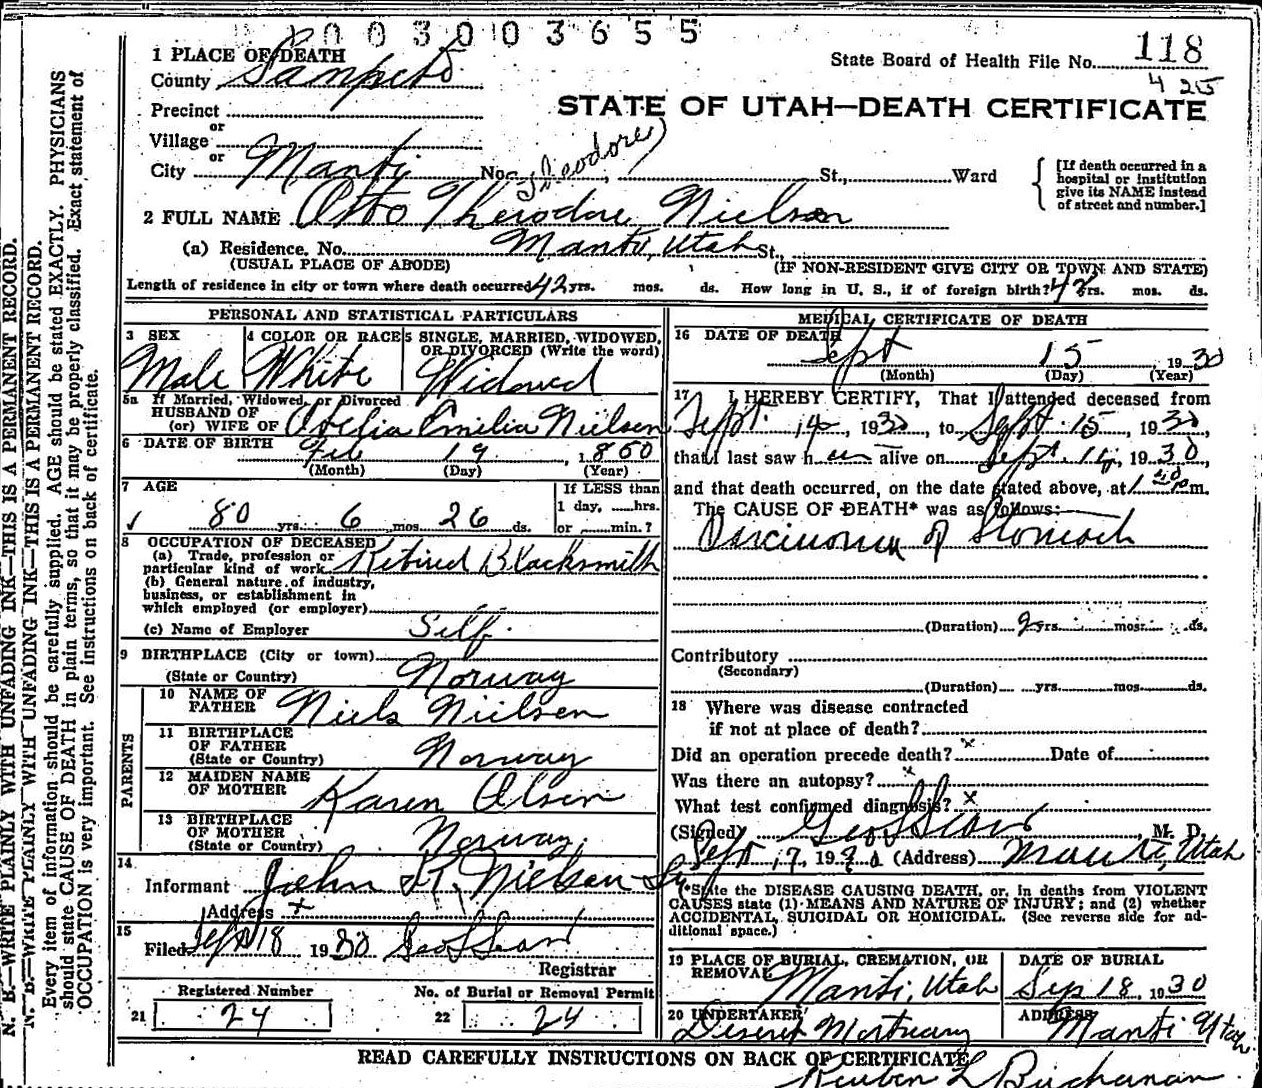 003003655
1 PLACE OF DEATH
State Board of Health File No. 118
County Sanpete
4 25
Precinct
STATE OF UTAH—DEATH CERTIFICATE
or
Village
or
City Manti No. (Theodore) St., Ward
[If death occurred in a hospital or institution give its NAME instead of street and number.]
2 FULL NAME Otto Theodore Nielson
(a) Residence. No. Manti, Utah St.,
(USUAL PLACE OF ABODE) (IF NON-RESIDENT GIVE CITY OR TOWN AND STATE)
Length of residence in city or town where death occurred 42 yrs. mos. ds. How long in U. S., if of foreign birth? 42 yrs. mos. ds.
PERSONAL AND STATISTICAL PARTICULARS
3 SEX
Male
4 COLOR OR RACE
White
5 SINGLE, MARRIED, WIDOWED, OR DIVORCED (Write the word)
Widowed
5a If Married, Widowed, or Divorced
HUSBAND OF
(or) WIFE OF Emilia Nielsen
6 DATE OF BIRTH
Feb 19, 1850
(Month) (Day) (Year)
7 AGE
80 yrs. 6 mos. 26 ds.
If LESS than
1 day, hrs.
or min.?
8 OCCUPATION OF DECEASED
(a) Trade, profession or
particular kind of work Retired Blacksmith
(b) General nature of industry,
business, or establishment in
which employed (or employer)
(c) Name of Employer Self.
9 BIRTHPLACE (City or town)
(State or Country) Norway
PARENTS
10 NAME OF
FATHER Niels Nielsen
11 BIRTHPLACE
OF FATHER
(State or Country) Norway
12 MAIDEN NAME
OF MOTHER Karen Olsen
13 BIRTHPLACE
OF MOTHER
(State or Country) Norway
14
Informant John K. Nielson Sr
Address x
15
Filed Sept 18 1930 Geo L Sears
Registrar
Registered Number
21 24
No. of Burial or Removal Permit
22 24
MEDICAL CERTIFICATE OF DEATH
16 DATE OF DEATH
Sept 15, 1930
(Month) (Day) (Year)
17 I HEREBY CERTIFY, That I attended deceased from
Sept. 14, 1930, to Sept. 15, 1930,
that I last saw him alive on Sept. 14, 1930,
and that death occurred, on the date stated above, at m.
The CAUSE OF DEATH* was as follows:
Carcinoma of Stomach
(Duration) 2 yrs. mos. ds.
Contributory
(Secondary)
(Duration) yrs. mos. ds.
18 Where was disease contracted
if not at place of death?
Did an operation precede death? x Date of
Was there an autopsy? x
What test confirmed diagnosis? x
(Signed) Geo L Sears, M. D.
Sept 17, 1930 (Address) Manti, Utah
*State the DISEASE CAUSING DEATH, or, in deaths from VIOLENT
CAUSES state (1) MEANS AND NATURE OF INJURY; and (2) whether
ACCIDENTAL, SUICIDAL OR HOMICIDAL. (See reverse side for ad-
ditional space.)
19 PLACE OF BURIAL, CREMATION, OR
REMOVAL
Manti, Utah
DATE OF BURIAL
Sep 18, 1930
20 UNDERTAKER
Deseret Mortuary
ADDRESS
Manti Utah
READ CAREFULLY INSTRUCTIONS ON BACK OF CERTIFICATE
Reuben L Buchanan
N. B.—WRITE PLAINLY WITH UNFADING INK—THIS IS A PERMANENT RECORD.
N. B.—WRITE PLAINLY WITH UNFADING INK—THIS IS A PERMANENT RECORD.
Every item of information should be carefully supplied. AGE should be stated EXACTLY. PHYSICIANS
should state CAUSE OF DEATH in plain terms, so that it may be properly classified. Exact statement of
OCCUPATION is very important. See instructions on back of certificate.